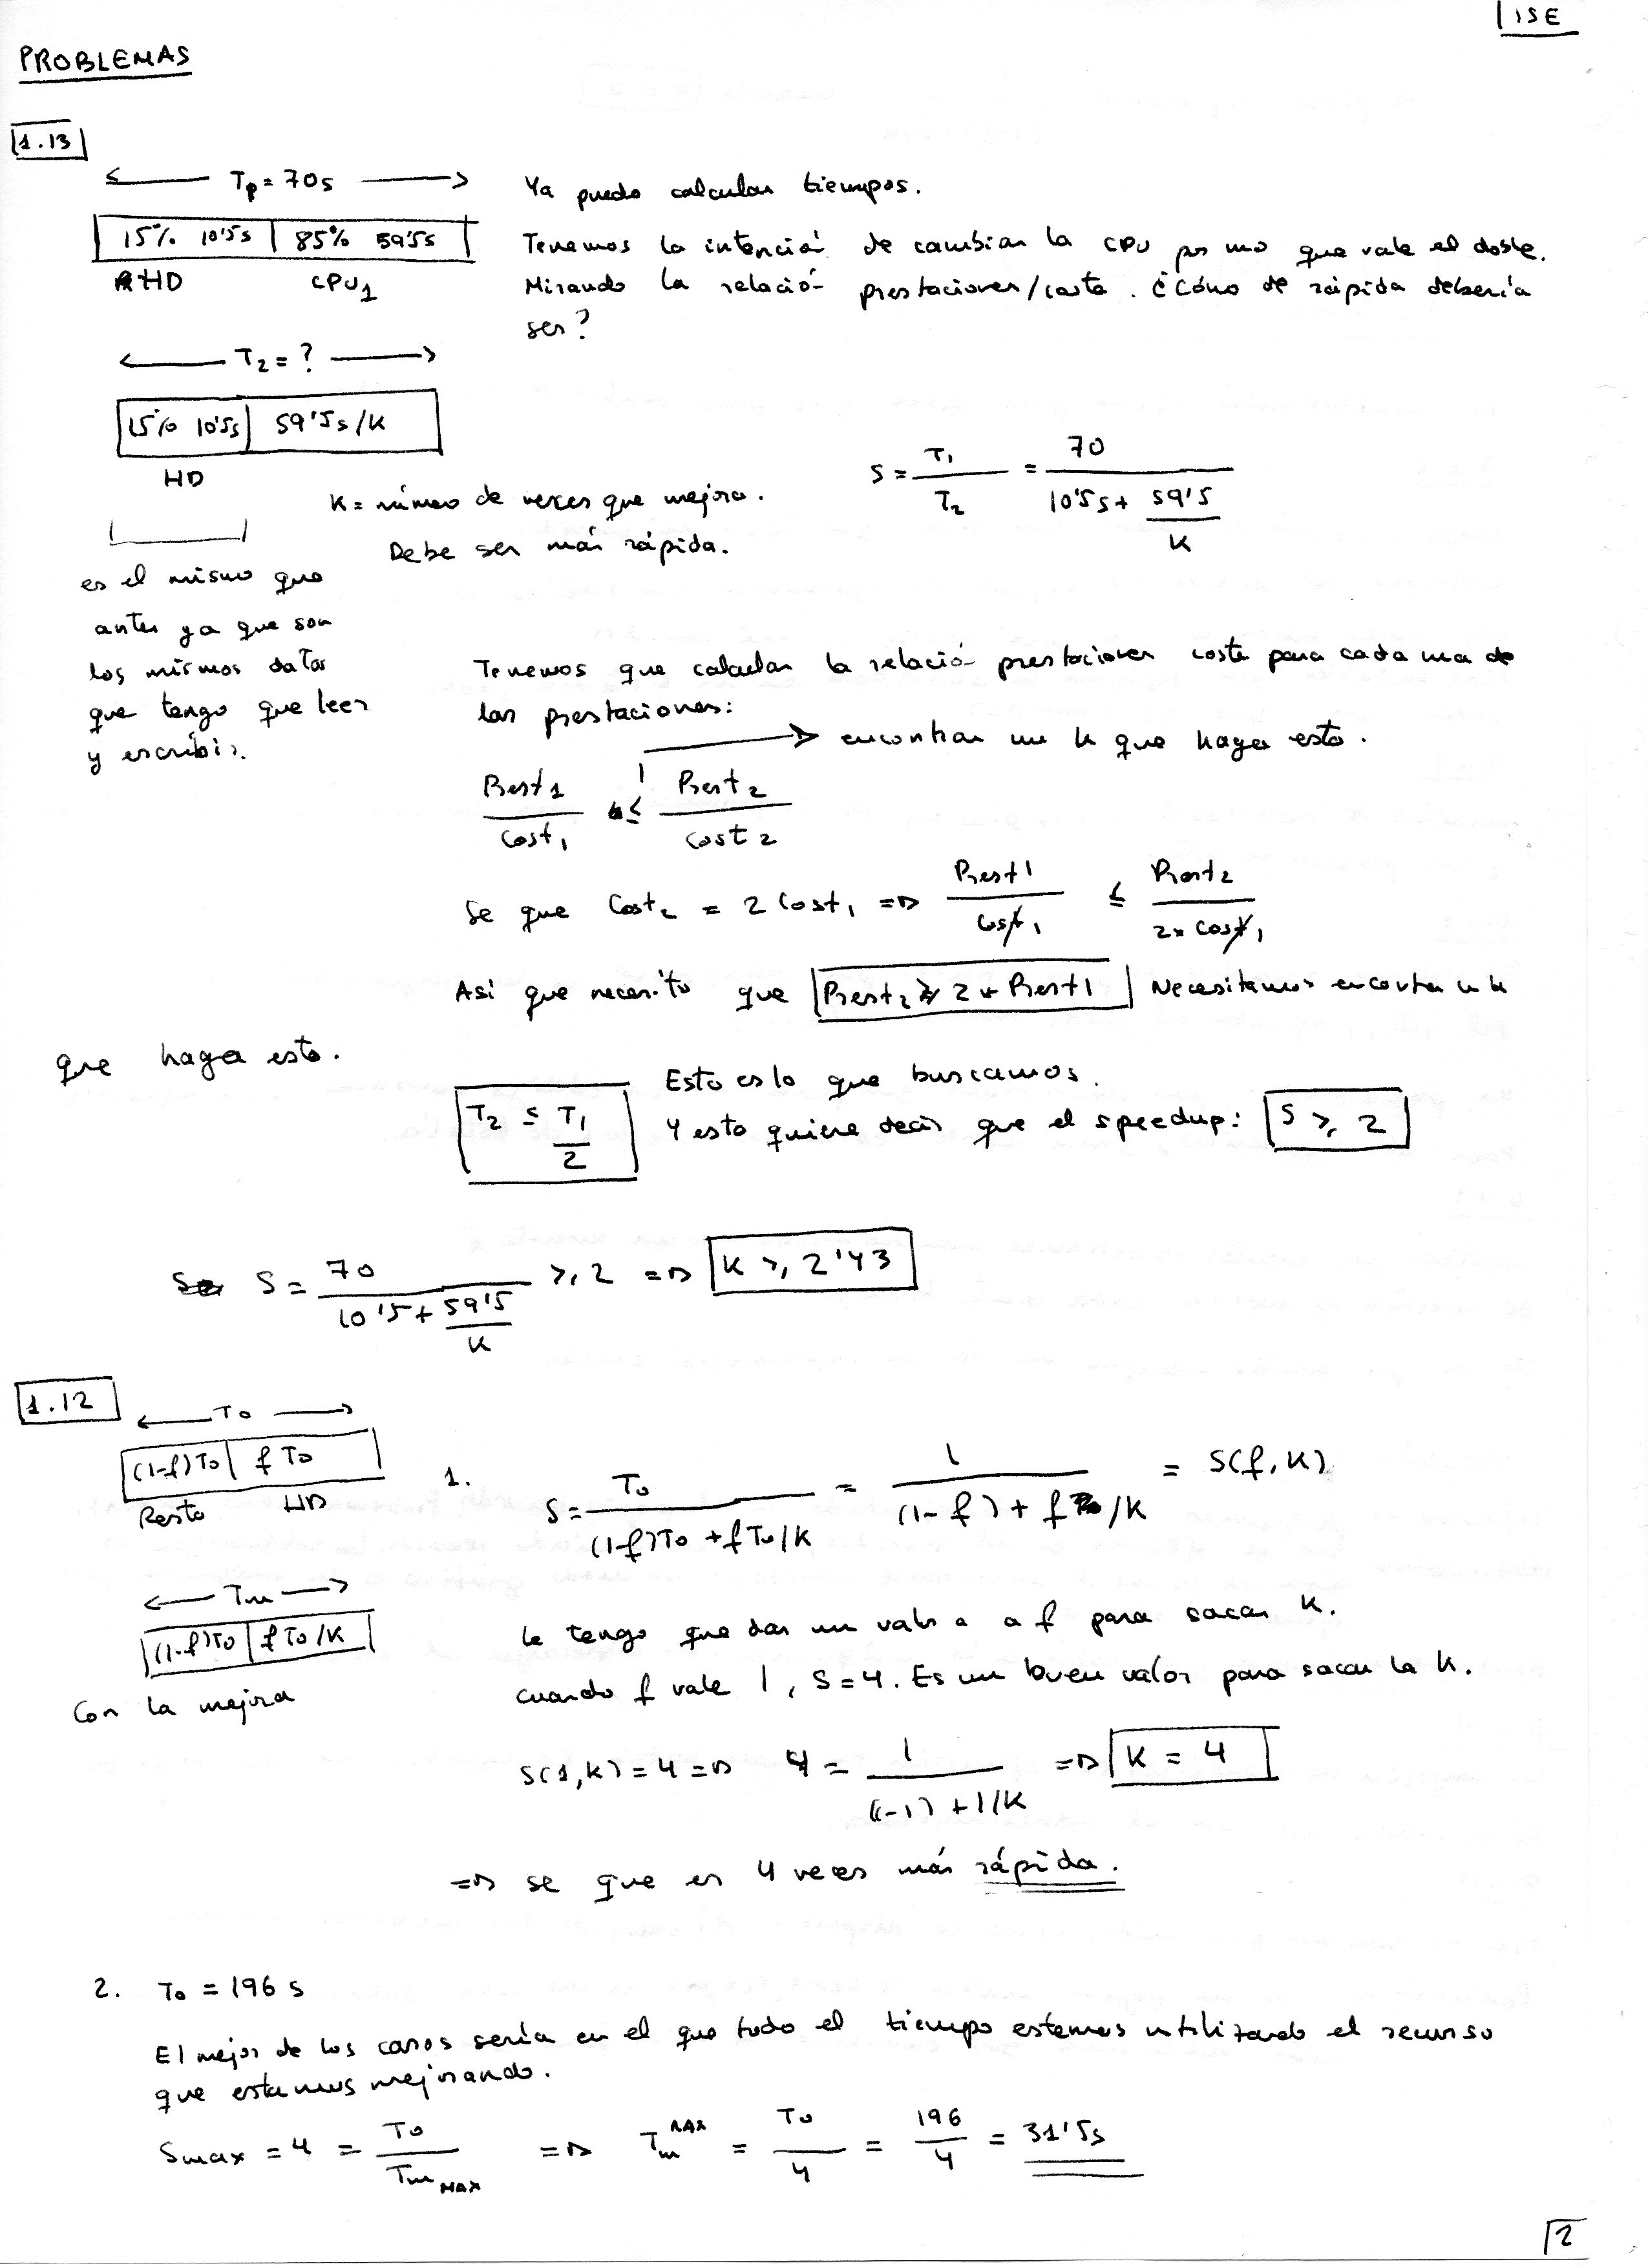 ISE
PROBLEMAS
1.13
Tp = 70s
15% 10'5s | 85% 59'5s
HD CPU1
Ya puedo calcular tiempos.
Tenemos la intención de cambiar la CPU por una que vale el doble.
Mirando la relación prestaciones/coste. ¿Cómo de rápida debería
ser?
T2 = ?
15% 10'5s | 59'5s/K
HD
K = número de veces que mejora.
Debe ser más rápida.
S = T1 / T2 = 70 / (10'5s + 59'5/K)
es el mismo que
antes ya que son
los mismos datos
que tengo que leer
y escribir.
Tenemos que calcular la relación prestaciones coste para cada una de
las prestaciones:
encontrar un k que haga esto.
Prest1 / Cost1 ≤ Prest2 / Cost2
Se que Cost2 = 2 Cost1 => Prest1 / Cost1 ≤ Prest2 / 2*Cost1
Asi que necesito que Prest2 ≥ 2 * Prest1 Necesitamos encontrar un k
que haga esto.
T2 ≤ T1 / 2
Esto es lo que buscamos.
Y esto quiere decir que el speedup: S ≥ 2
S = 70 / (10'5 + 59'5/K) ≥ 2 => K ≥ 2'43
1.12
To
(1-f)To | f To
Resto HD
1. S = To / ((1-f)To + f To/K) = 1 / ((1-f) + f/K) = S(f, K)
Tm
(1-f)To | f To/K
Con la mejora
Le tengo que dar un valor a a f para sacar K.
Cuando f vale 1, S = 4. Es un buen valor para sacar la K.
S(1,K) = 4 => 4 = 1 / ((1-1) + 1/K) => K = 4
=> se que es 4 veces más rápida.
2. To = 196 s
El mejor de los casos sería en el que todo el tiempo estemos utilizando el recurso
que estamos mejorando.
Smax = 4 = To / Tm MAX => Tm MAX = To / 4 = 196 / 4 = 31'5s
2